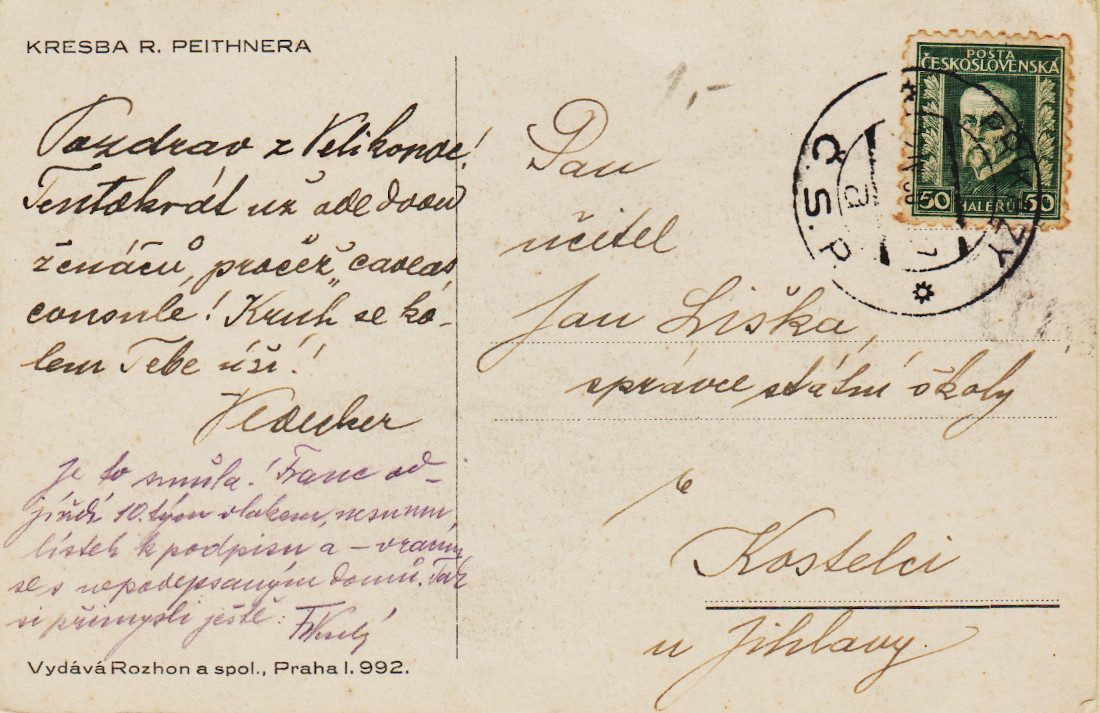 KRESBA R. PEITHNERA
Pozdrav z Velikonoc!
Tentokrát už ode dvou
ženáčů, pročež „caveas
consule! Kruh se ko-
lem Tebe úží!
Je to smůla! Franc od-
jíždí 10.tým vlakem, nesu mu
lístek k podpisu a – vracím
se s nepodepsaným domů. Tak
si přimysli ještě:
Vydává Rozhon a spol., Praha I. 992.
1,-
POŠTA
ČESKOSLOVENSKÁ
50 HALÉŘŮ 50
Č.S.P.
Pan
učitel
Jan Liška,
správce státní školy
v
Kostelci
u Jihlavy.